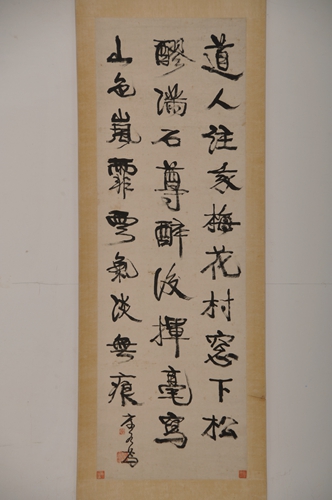 道人住家梅花村窓下松
醪滿石尊醉後揮毫寫
山色嵐霏雲氣淡無痕